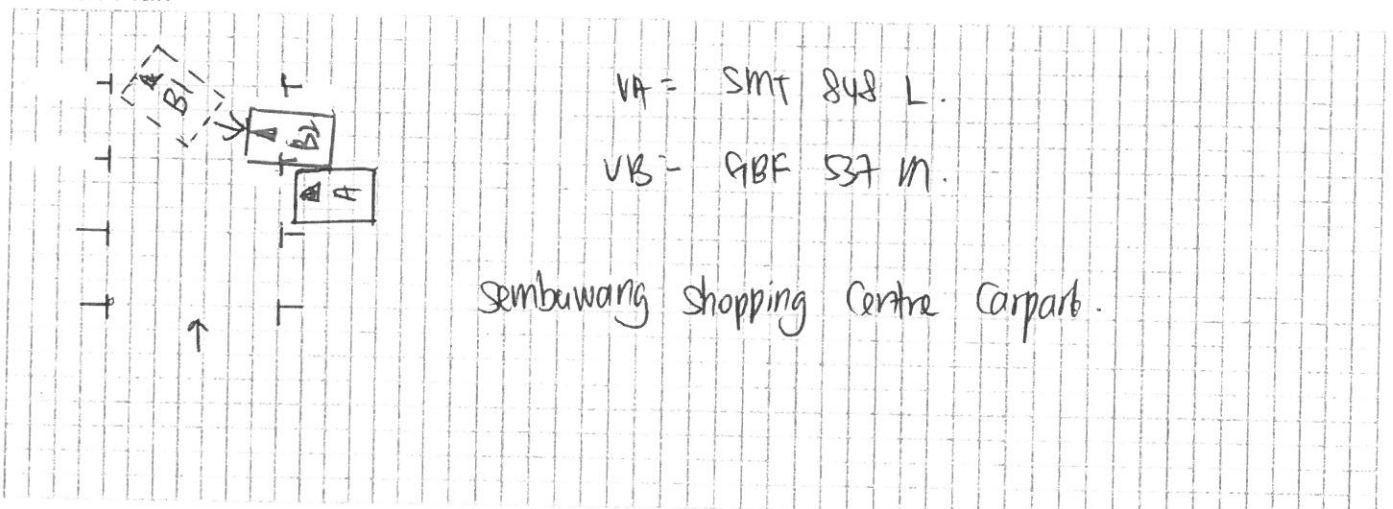 VA = SMT 848 L.
VB - GBF 537 M.
Sembawang Shopping Centre Carpark.
B1
B2
A